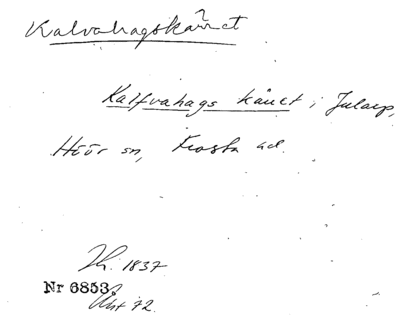 ?
Kalvahagskäret
Kalfvahags käret i Jularp,
Höör sn, Frosta hd.
Th. 1837
Nr 6853.
Akt 72.